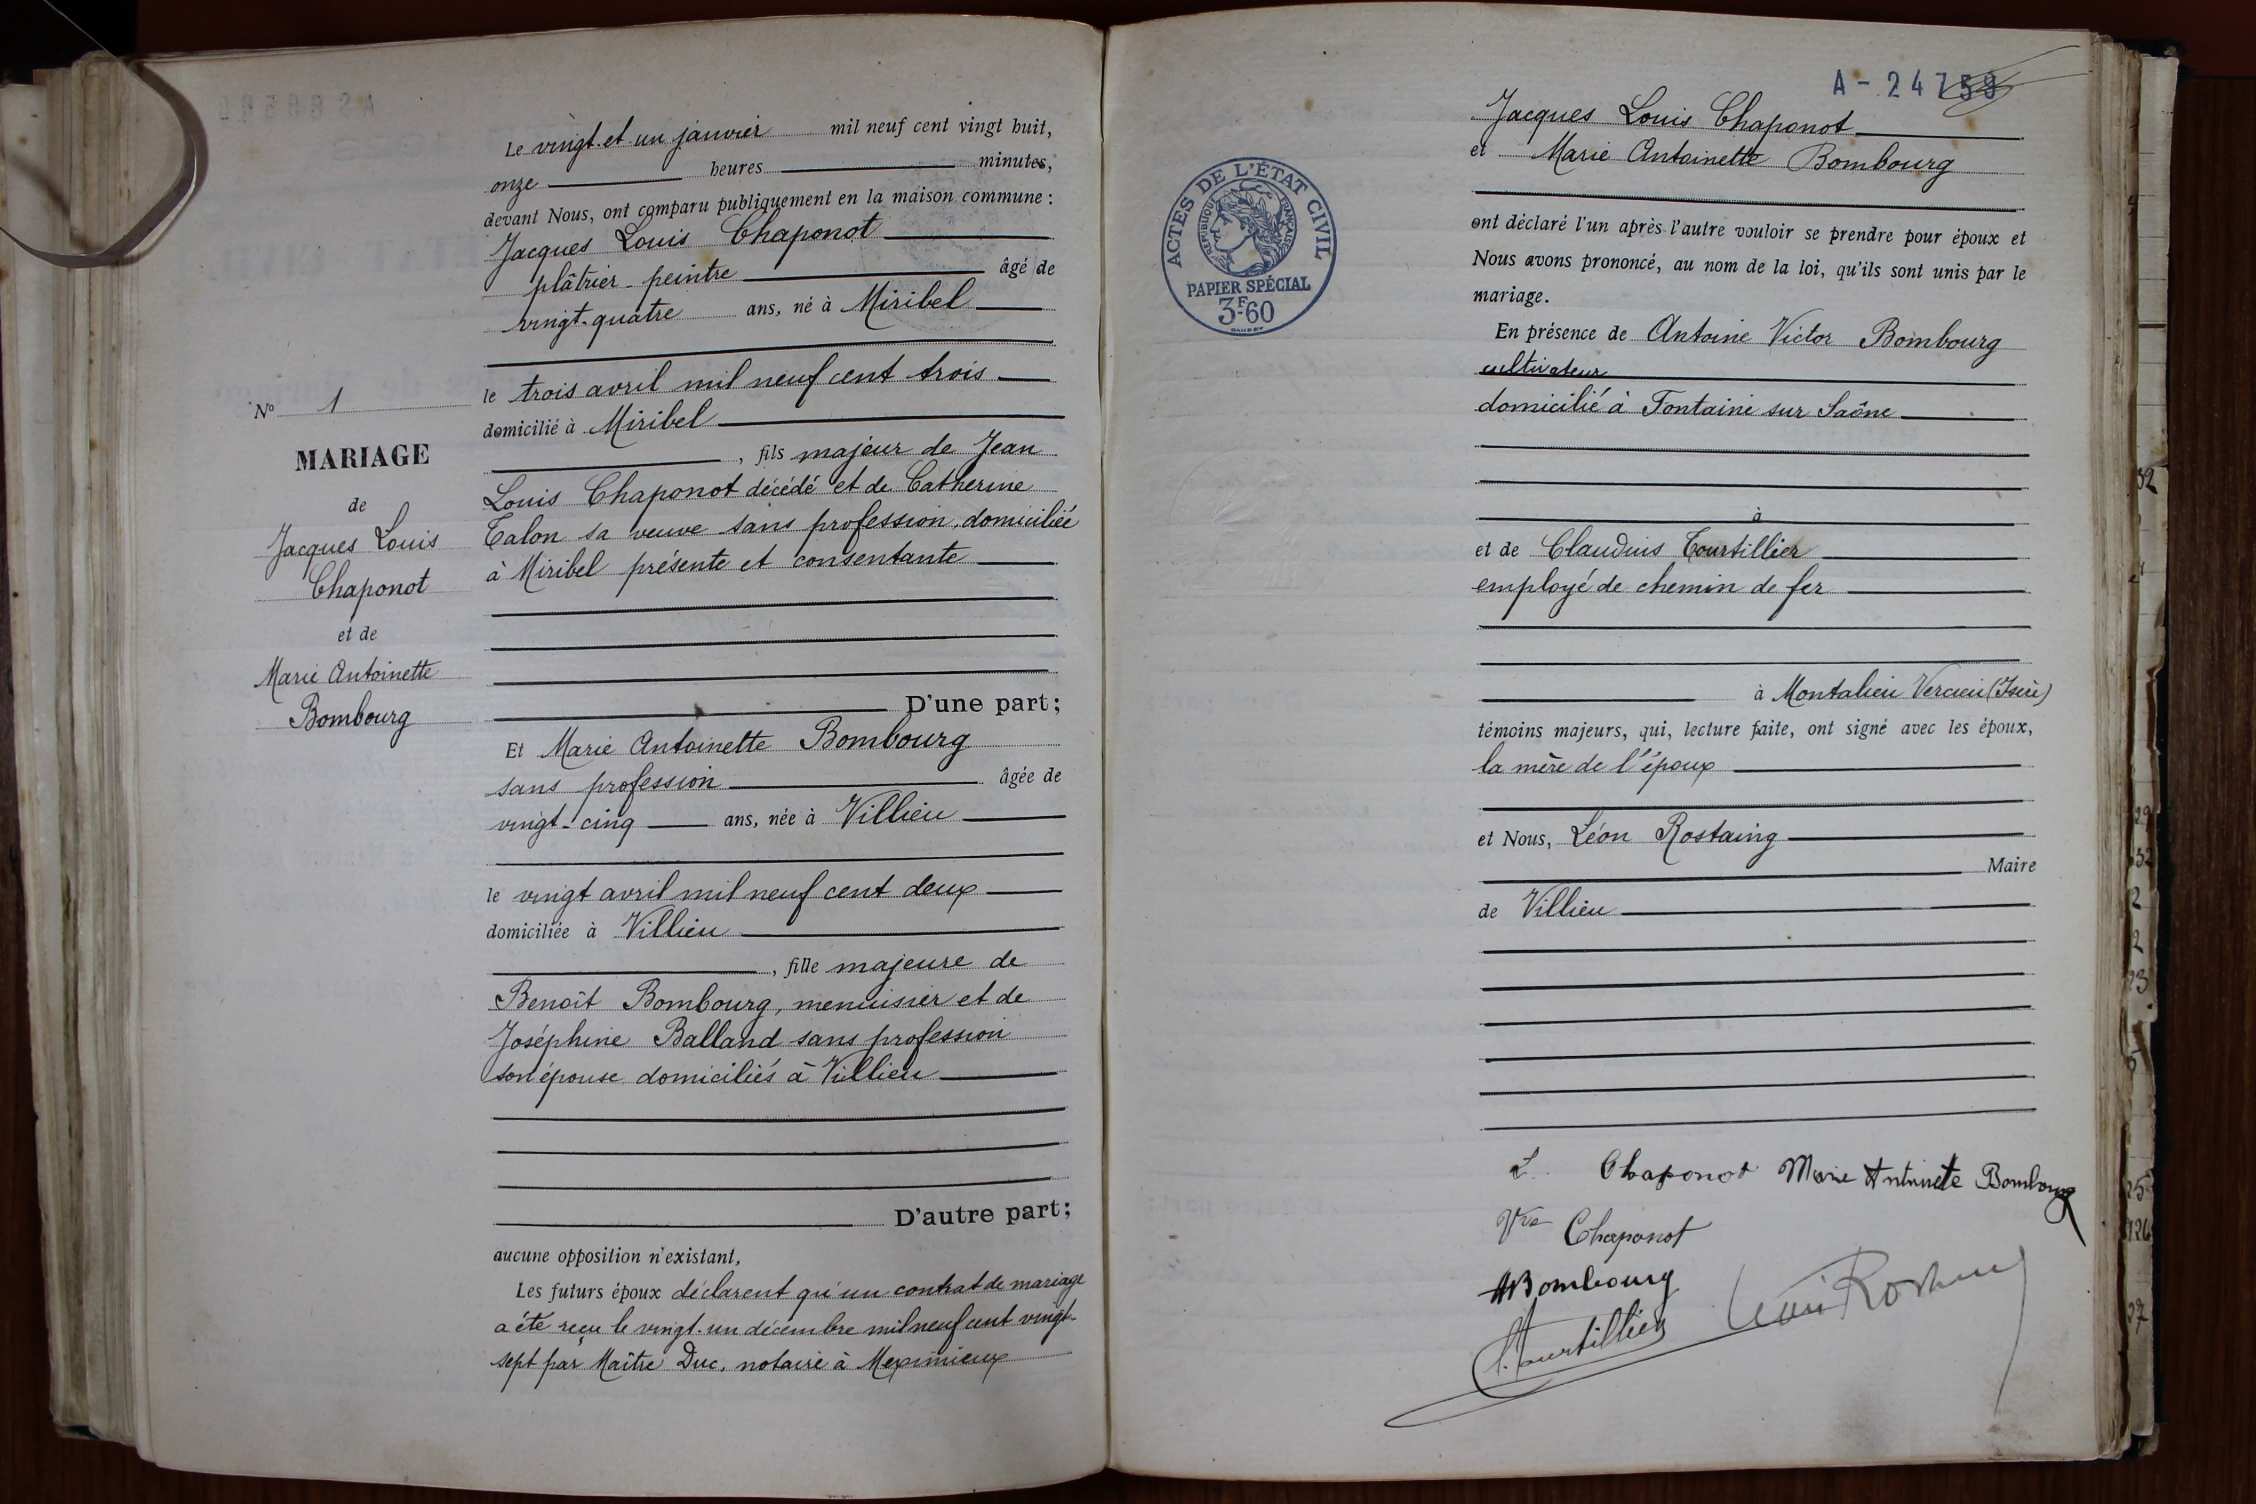 N° 1
MARIAGE
de
Jacques Louis
Chaponot
et de
Marie Antoinette
Bombourg
Le vingt-et-un janvier mil neuf cent vingt huit,
onze heures minutes,
devant Nous, ont comparu publiquement en la maison commune :
Jacques Louis Chaponot
plâtrier-peintre âgé de
vingt-quatre ans, né à Miribel
le trois avril mil neuf cent trois
domicilié à Miribel
, fils majeur de Jean
Louis Chaponot décédé et de Catherine
Talon sa veuve sans profession, domiciliée
à Miribel présente et consentante
D'une part;
Et Marie Antoinette Bombourg
sans profession âgée de
vingt-cinq ans, née à Villieu
le vingt avril mil neuf cent deux
domiciliée à Villieu
, fille majeure de
Benoît Bombourg, menuisier et de
Joséphine Balland sans profession
son épouse domiciliés à Villieu
D'autre part;
aucune opposition n'existant,
Les futurs époux déclarent qu'un contrat de mariage
a été reçu le vingt-un décembre mil neuf cent vingt-
sept par Maître Duc, notaire à Meximieux
A-24759
ACTES DE L'ÉTAT CIVIL
RÉPUBLIQUE FRANÇAISE
PAPIER SPÉCIAL
3F60
Jacques Louis Chaponot
et Marie Antoinette Bombourg
ont déclaré l'un après l'autre vouloir se prendre pour époux et
Nous avons prononcé, au nom de la loi, qu'ils sont unis par le
mariage.
En présence de Antoine Victor Bombourg
cultivateur
domicilié à Fontaine sur Saône
à
et de Claudius Tourtillier
employé de chemin de fer
à Montalieu Vercieu (Isère)
témoins majeurs, qui, lecture faite, ont signé avec les époux,
la mère de l'époux
et Nous, Léon Rostaing
Maire
de Villieu
L. Chaponot Marie Antoinette Bombourg
Vve Chaponot
ABombourg
C. Tourtillier Léon Rostaing